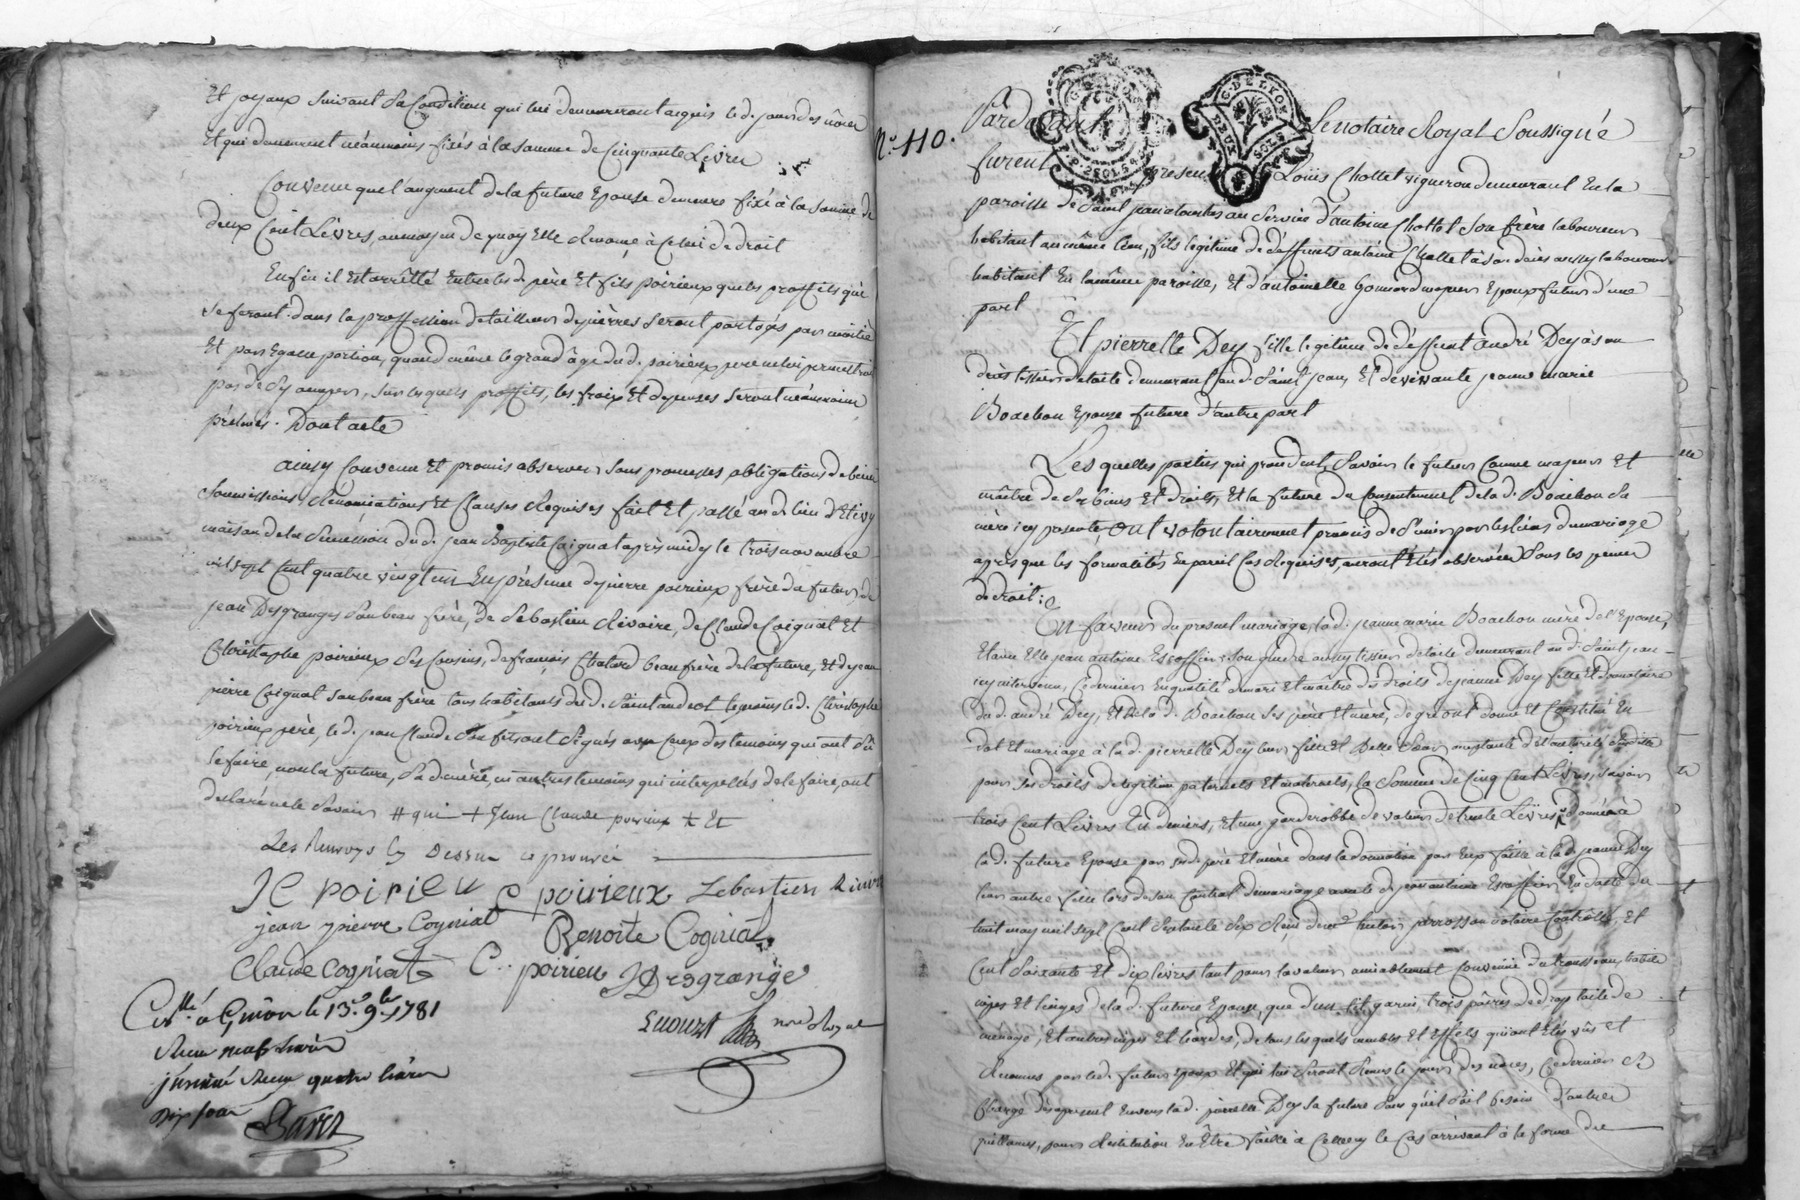 Et joyaux suivant sa Condition qui lui demeureront acquis led. jour des nôces
Et qui demeurent néanmoins fixés à la somme de Cinquante Livres
Convenu que l'augment de la future Epouse demeure fixé à la somme de
deux Cent Livres, au moyen de quoy Elle Renonce à Celui de droit
Enfin il Est arrêtté Entre lesd. père Et fils poirieux que les proffits qui
se feront dans la proffession de tailleurs de pierres seront partagés par moitié
Et par Egalle portion, quand même le grand âge dud. poirieux père ne lui permettroit
pas de s'y occuper, sur lesquels proffits, les fraix Et dépenses seront néanmoins
prélevés. Dont acte
ainsy Convenu Et promis observer sous promesses obligations de biens
soumissions Rénonciations Et Clauses Requises fait Et passé aud. lieu
maison de la d. jean Baptiste Coignat après midy le trois novembre
mil sept Cent quatre vingt un En présence de pierre poirieux frère du futur, de
jean Desgranges son beau frère, de Sébastien Rivoire, de Claude Coignat Et
Christophe poirieux ses Cousins, de françois Chatard beau frère de la future, Et de jean
pierre Coignat son beau frère tous habitants dud. Saint andeol lesd. Christophe
poirieux père, led. jean Claude son fils ont signés avec Ceux des temoins qui ont sû
le faire, non la future, sa d. mère, ni autres temoins qui interpellés de le faire, ont
declaré ne le savoir # qui + Jean Claude poirieux + Et
Les Renvoys Cy Dessus approuvés
JC poirieu C poirieux Sebastien Rivoire
jean pierre Cogniat Benoite Cogniat
Claude Cogniat C. poirieu JDesgrange
Cllé à Givors le 13e 9bre 1781
Reçu
insinué Reçu quatre livres
dix sous
N.o 110.
Pardevant Le notaire Royal Soussigné
furent present Loüis Chollet vigneron demeurant En la
paroisse de Saint jean de toulas au service d'antoine Chollet son frère laboureur
habitant au même lieu, fils legitime de deffunts antoine Chollet à son décès aussy laboureur
habitant En la même paroisse, Et d'antoinette Gonnard Epoux futur d'une
part
Et pierrette Dey fille legitime de deffunt andré Dey à son
décès tissier de toile demeurant aud. Saint jean, Et de vivante jeanne marie
Boachon Epouse future d'autre part
Lesquelles parties qui procedent, savoir le futur Comme majeur Et
maître de ses biens Et droits, Et la future du Consentement de lad. Boachon sa
mère icy presente, ont volontairement promis de s'unir par les liens du mariage
après que les formalités En pareil Cas Requises, auront Etés observées sous les peines
de droit.
En faveur du present mariage, lad. jeanne marie Boachon mère de l'Epouse,
Et avec Elle jean antoine Escoffier son gendre aussy tissier de toile demeurant aud. Saint jean
icy intervenu, Ce dernier En qualité de mari Et maître des droits de jeanne Dey fille Et donataire
dud. andré Dey, Et de lad. Boachon ses père Et mère, de gré ont donné Et Constitué En
dot Et mariage à lad. pierrette Dey leur fille Et Belle Sœur
pour ses droits de legitime paternels Et maternels, la somme de Cinq Cent Livres, savoir
trois Cent Livres En deniers, Et une garderobbe de valeur de trente Livres, donnée à
lad. future Epouse par sesd. père Et mère dans la donation par Eux faite à lad. jeanne Dey
leur autre fille lors de son Contrat de mariage avec led. jean antoine Escoffier En datte du
huit may mil sept Cent septante six Reçu de notaire Controllé, Et
Cent Soixante Et dix livres tant pour la valeur amiablement Convenüe du trousseau, habits
nipes Et linges de lad. future Epouse, que d'un lit garni, trois pàires de draps toile de
menage, Et autres nipes Et hardes, de tous lesquels meubles Et Effets qui ont Etés vûs Et
Reconnus par led. futur Epoux Et qui lui seront Remis le jour des nôces, Ce dernier se
Charge dèsapresent Envers lad. pierrette Dey sa future sans qu'il soit besoin d'autres
quittances, pour Restitution En Être faite à Celle cy le Cas arrivant à la forme du